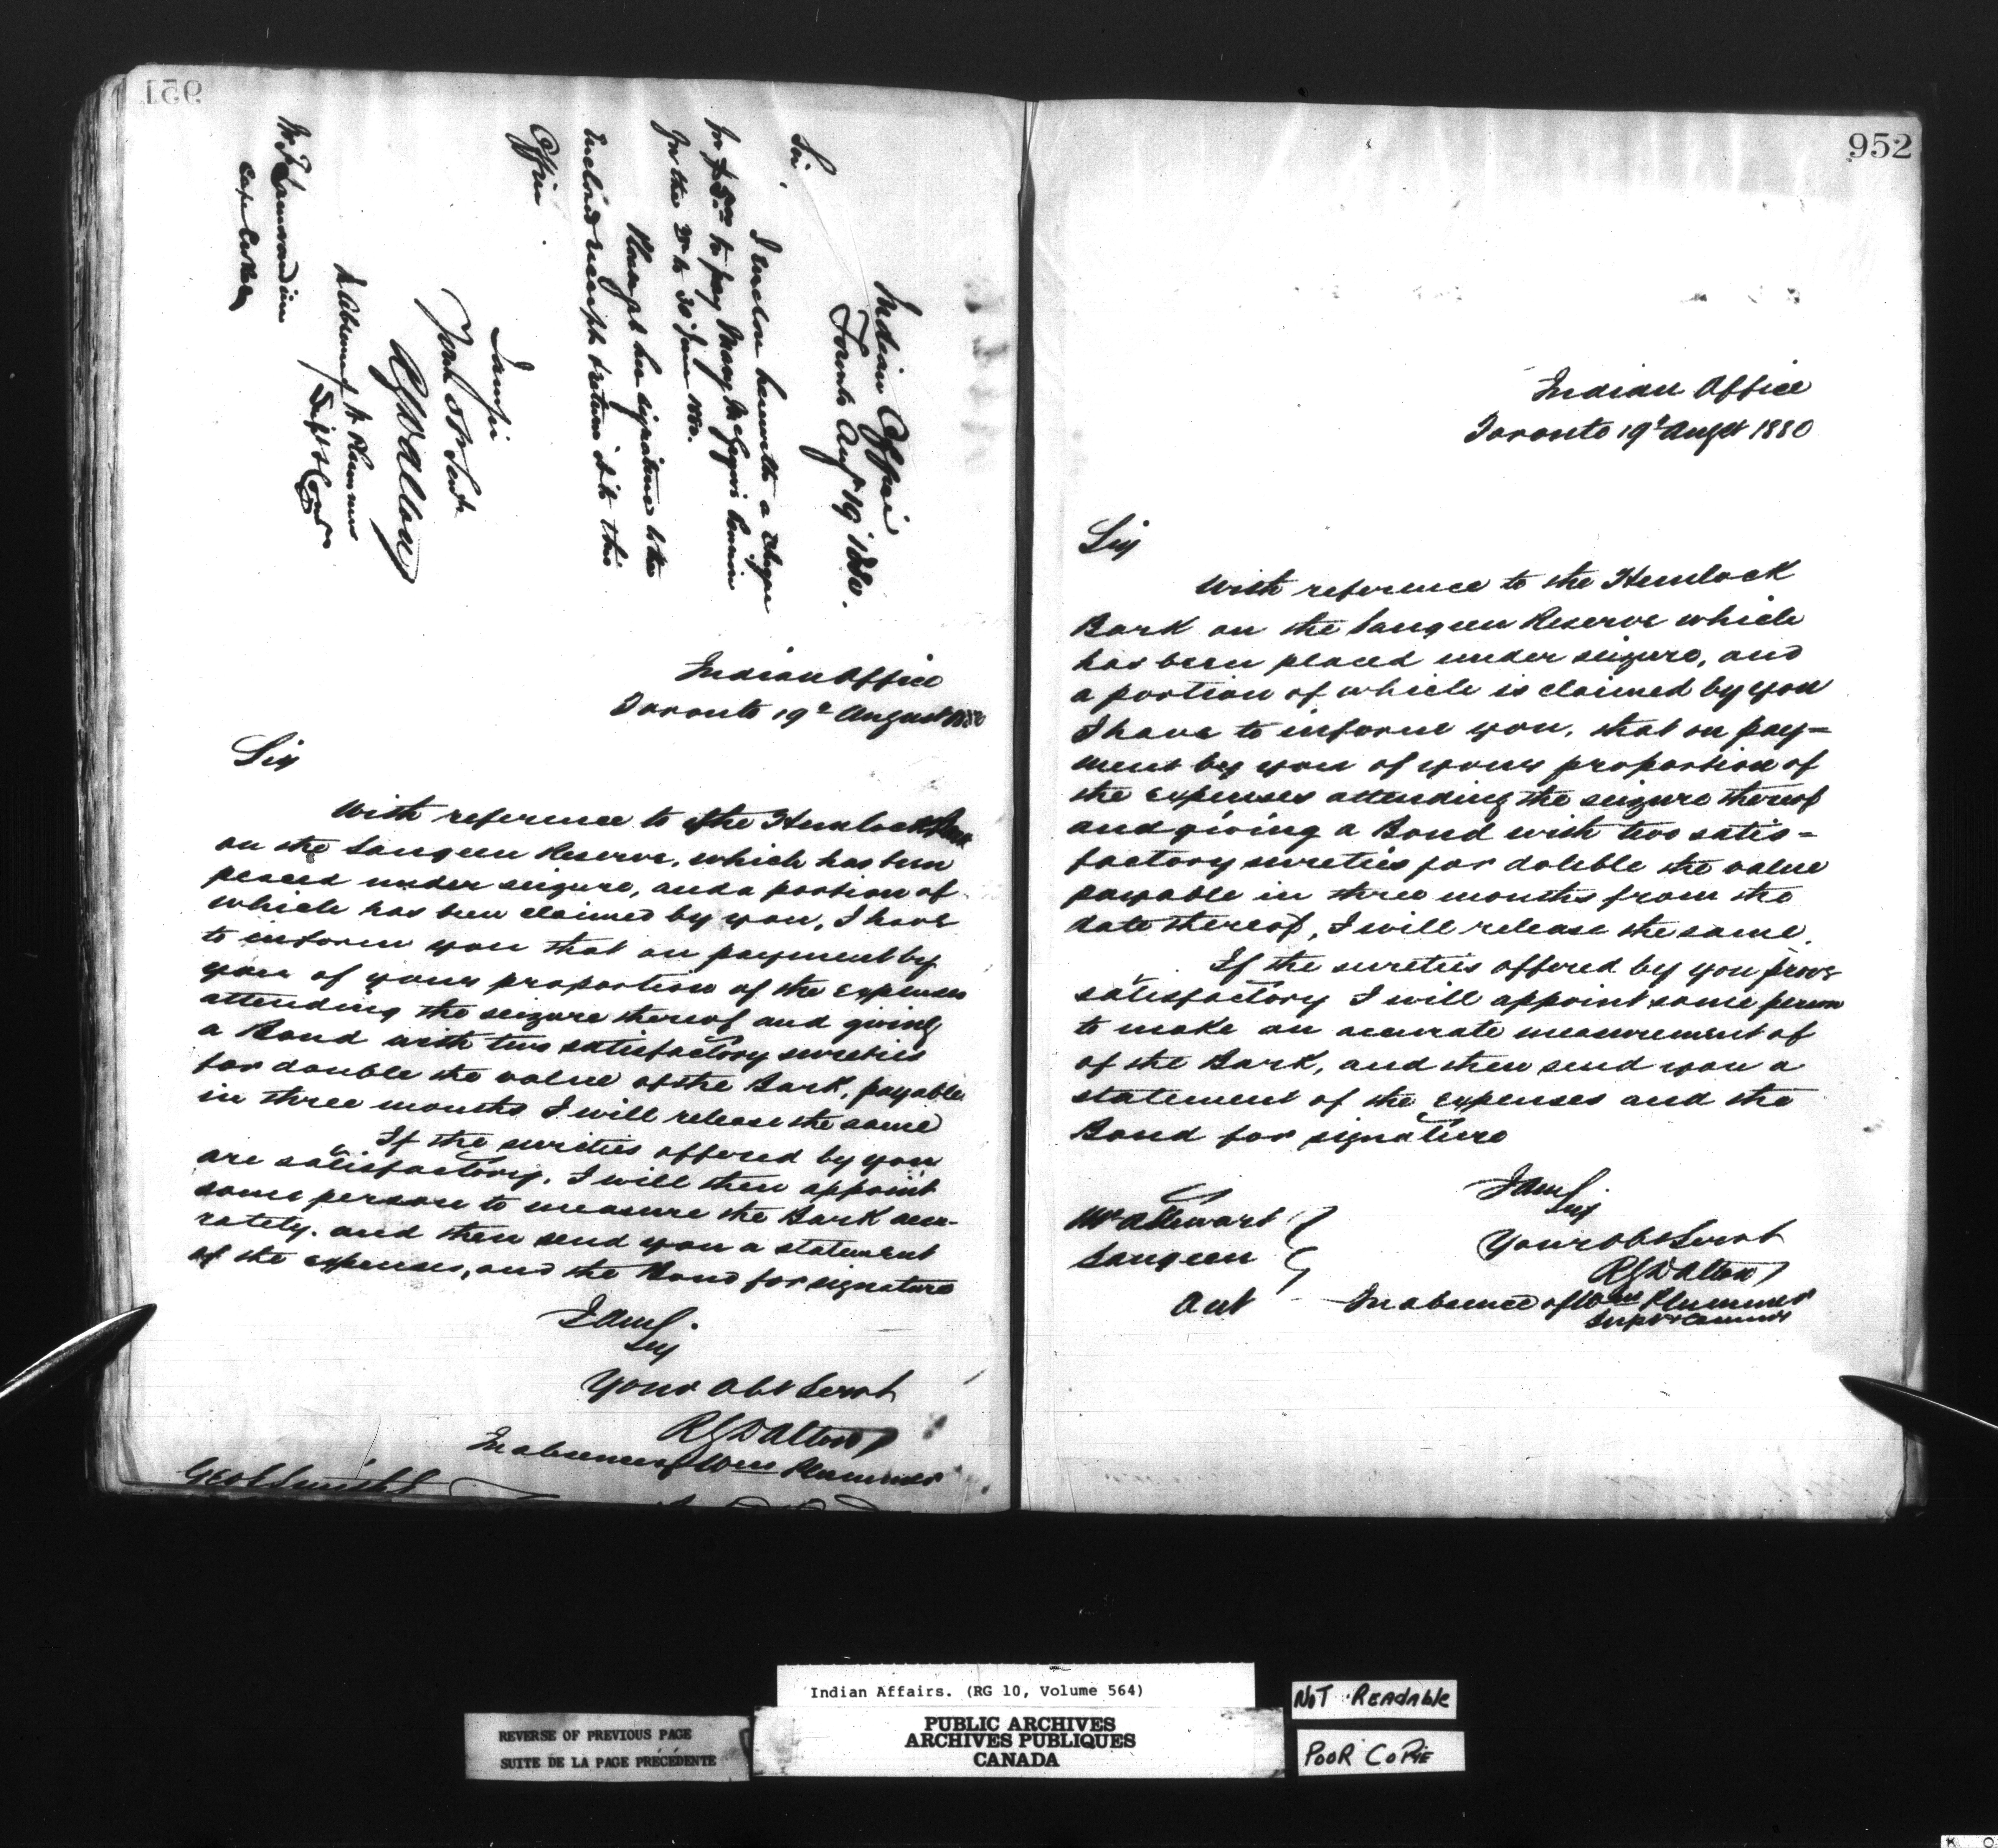 951
Indian Office
Toronto Aug 19 1880.
Sir,
I enclose herewith a cheque
to pay Mary
30 June 1880.
Please get her signature to the
Enclosed receipt & return it to this
Office
I am Sir
Your Obt Servt
RGDalton
In absence of W Plummer
Supt & Comr
Mr Lamorandiere
Cape Croker
Indian Office
Toronto 19th August 1880
Sir
With reference to the Hemlock Bark
on the Saugeen Reserve, which has been
placed under seizure, and a portion of
which has been claimed by you, I have
to inform you that on payment by
you of your proportion of the expenses
attending the seizure thereof and giving
a Bond with two satisfactory sureties
for double the value of the Bark, payable
in three months I will release the same
If the surities offered by you
are satisfactory, I will then appoint
some person to measure the Bark accu-
rately. and then send you a statement
of the expenses, and the Bond for signature
I am
Sir
Your Obt Servt
RGDalton
In absence of Wm Plummer
Geo Smith
952
Indian Office
Toronto 19th Augst 1880
Sir
With reference to the Hemlock
Bark on the Saugeen Reserve which
has been placed under seizure, and
a portion of which is claimed by you
I have to inform you, that on pay=
ment by you of your proportion of
the expenses attending the seizure thereof
and giving a Bond with two satis=
factory sureties for double the value
payable in three months from the
date thereof, I will release the same.
If the sureties offered by you prove
satisfactory I will appoint some person
to make an accurate measurement of
of the Bark, and then send you a
statement of the expenses and the
Bond for signature
I am
Sir
Your Obt Servt
RGDalton
In absence of Wm Plummer
Supt & Commr
Mr A Stewart
Saugeen
Ont
Indian Affairs. (RG 10, Volume 564)
PUBLIC ARCHIVES
ARCHIVES PUBLIQUES
CANADA
REVERSE OF PREVIOUS PAGE
SUITE DE LA PAGE PRÉCÉDENTE
NOT READABLE
POOR COPIE